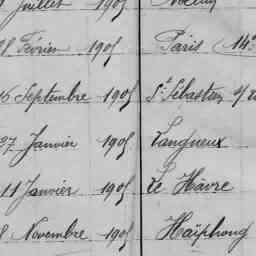 Juillet 1905
28 Février 1905 Paris (14e
16 Septembre 1905 St Sébastien s/
27 Janvier 1905 Langueux
11 Janvier 1905 Le Hâvre
8 Novembre 1905 Haïphong